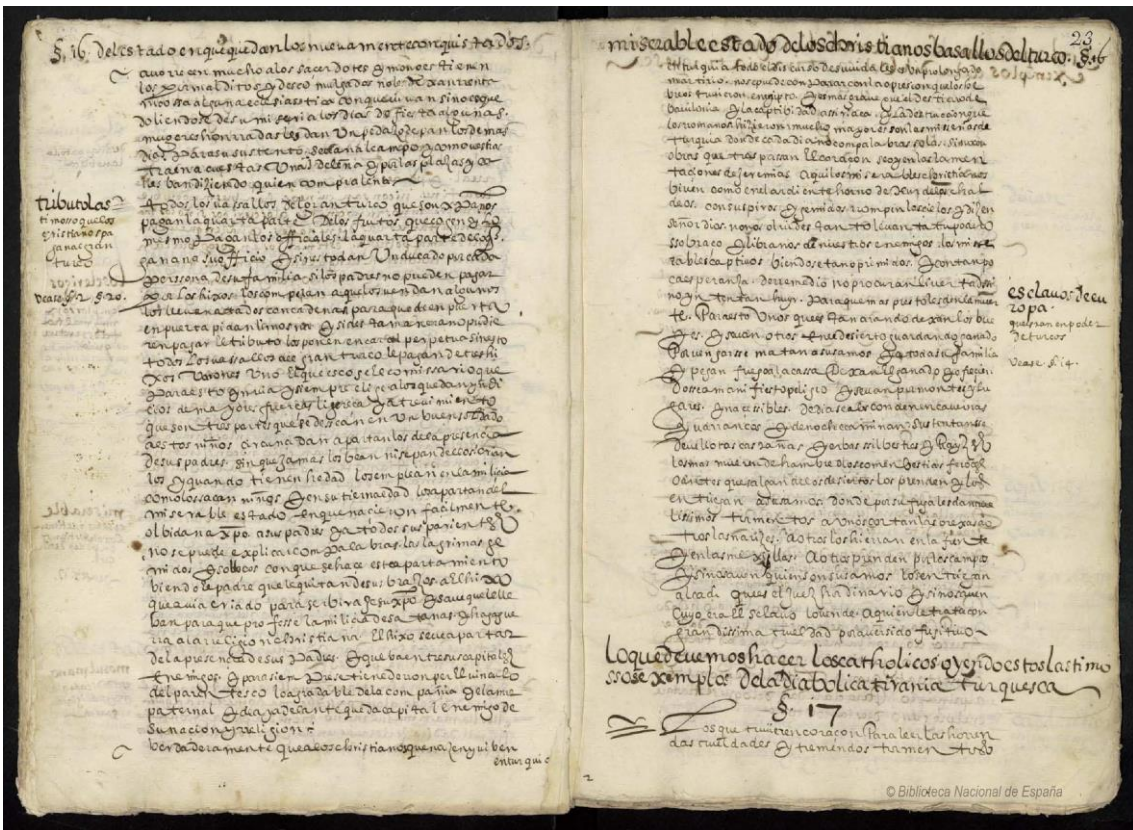 §. 16. del estado en que quedan los nuevamente conquistados.
avorrecen mucho a los sacerdotes y monoes tienen
los por malditos y descomulgados no les dexan renta
ni cossa alguna ecclesiastica con que vivan sino es que
doliendose de su miseria los dias de fiesta algunas
mugeres honrradas les dan un pedaço de pan los demas
dias para su sustento salen al campo y como vestias
traen a cuestas leña y por las plaças y ca
lles van diziendo quien compra leña
todos los vasallos del gran turco que son xpanos
pagan la quarta parte de los frutos que cogen y lo
mesmo pagan los officiales la quarta parte de lo que
ganan a su officio y sin esto dan un ducado por cada
perssona de su familia si los padres no pueden pagar
por los hixos los compelen a que los vendan algunos
los lleven atados con cadenas para que de en puerta
en puerta pidan limosna y si desta manera no pudie
ren pagar le tributo los ponen en carcel perpetua sin esto
todos los vasallos de el gran turco le pagan de tres hi
xos varones uno el que escoge el comissario que
para esto embia y siempre elige a los que dan yndi
cios de mayores fuerças ligereça y atrevimiento
que son tres partes que se dessean en un buen soldado
a estos niños
de sus padres sin que jamas los vean ni sepan dellos
los y quando tienen hedad los emplean en la milicia
como los sacan niños y en su tierna edad los apartan del
miserable estado en que nacieron facilmente
olbidan a xpo a sus padres y a todos sus parientes
no se puede explicar con palabras las lagrimas ge
midos y solloços con que se haçe este apartamiento
biendo el padre que le quitan de sus braços al hixo
que avia criado para servir a Jesu xpo y save que le lle
ban para que professe la milicia de satanas y haga gue
rra a la religion christiana el hixo se ve apartar
de la presencia de sus padres y que va entre sus capitales
enemigos y para siempre
del parentesco lo agradable de la compañia y el amor
paternal y de ay adelante queda capital enemigo de
su nacion y religion
verdaderamente que a los christianos que naçen y viben
en turqui
tributo las
timoso que los
cristianos pa
gan a el gran
turco
vease §. 12 §. 20.
23
miserable estado de los christianos basallos del turco. §. 16
en turquia todo el discurso de su vida les es un prolongado
martirio no se puede comparar con la opresion que los he
breos tuvieron en egipto y es mas grave que el destierro de
bavilonia y la captibidad assiriaca y la destruicion que
los romanos hizieron mucho mayores son las miserias de
turquia donde cada dia no con palabras solas sino con
obras que traspassan el coraçon se oyen las lamen
taciones de jeremias aqui los miserables christianos
biven como en el ardiente horno de
deos con suspiros y gemidos rompen los cielos y dizen
señor dios no nos olvides tanto levanta tu poderoso
braço y libranos de nuestros enemigos los mise
rables captivos biendose tan oprimidos y con tan po
ca esperança de remedio no procuran
no yntentan huyr para que mas presto les den la muer
te. Para esto unos que estan arando dexan los bue
yes y se van otros que en desierto guardan ganado
por vengarsse matan a sus amos y a toda su familia
y pegan fuego a la cassa dexan el ganado y
dosse a manifiesto peligro y se van por montes y lu
gares ynacessibles de dia se esconden en cavernas
y varrancos y de noche caminan sustentansse
de vellotas castañas y erbas silbestres y rayzes
los mas mueren de hambre o los comen bestias feroces
o a otros que salen a los desiertos los prenden y los
entriegan a sus amos donde por su fuga les dan crue
lissimos tormentos a unos cortan las orexas a o
tros las narizes. a otros los hierran en la frente
y en las mexillas a otros prenden por los campos
y si no saven quien son sus amos los entriegan
al cadi que es el juez hordinario y si no saven
cuyo era el esclavo lo vende a quien le trata con
grandissima crueldad por aver sido fugitivo
esclavos de eu
ropa
que stan en poder
de turcos
vease §. 14.
lo que devemos hacer los catholicos oyendo estos lastimo
ssos exemplos de la diabolica tirania turquesca
§. 17
los que tuvieren coraçon para leer las horren
das crueldades y tremendos tormentos
© Biblioteca Nacional de España